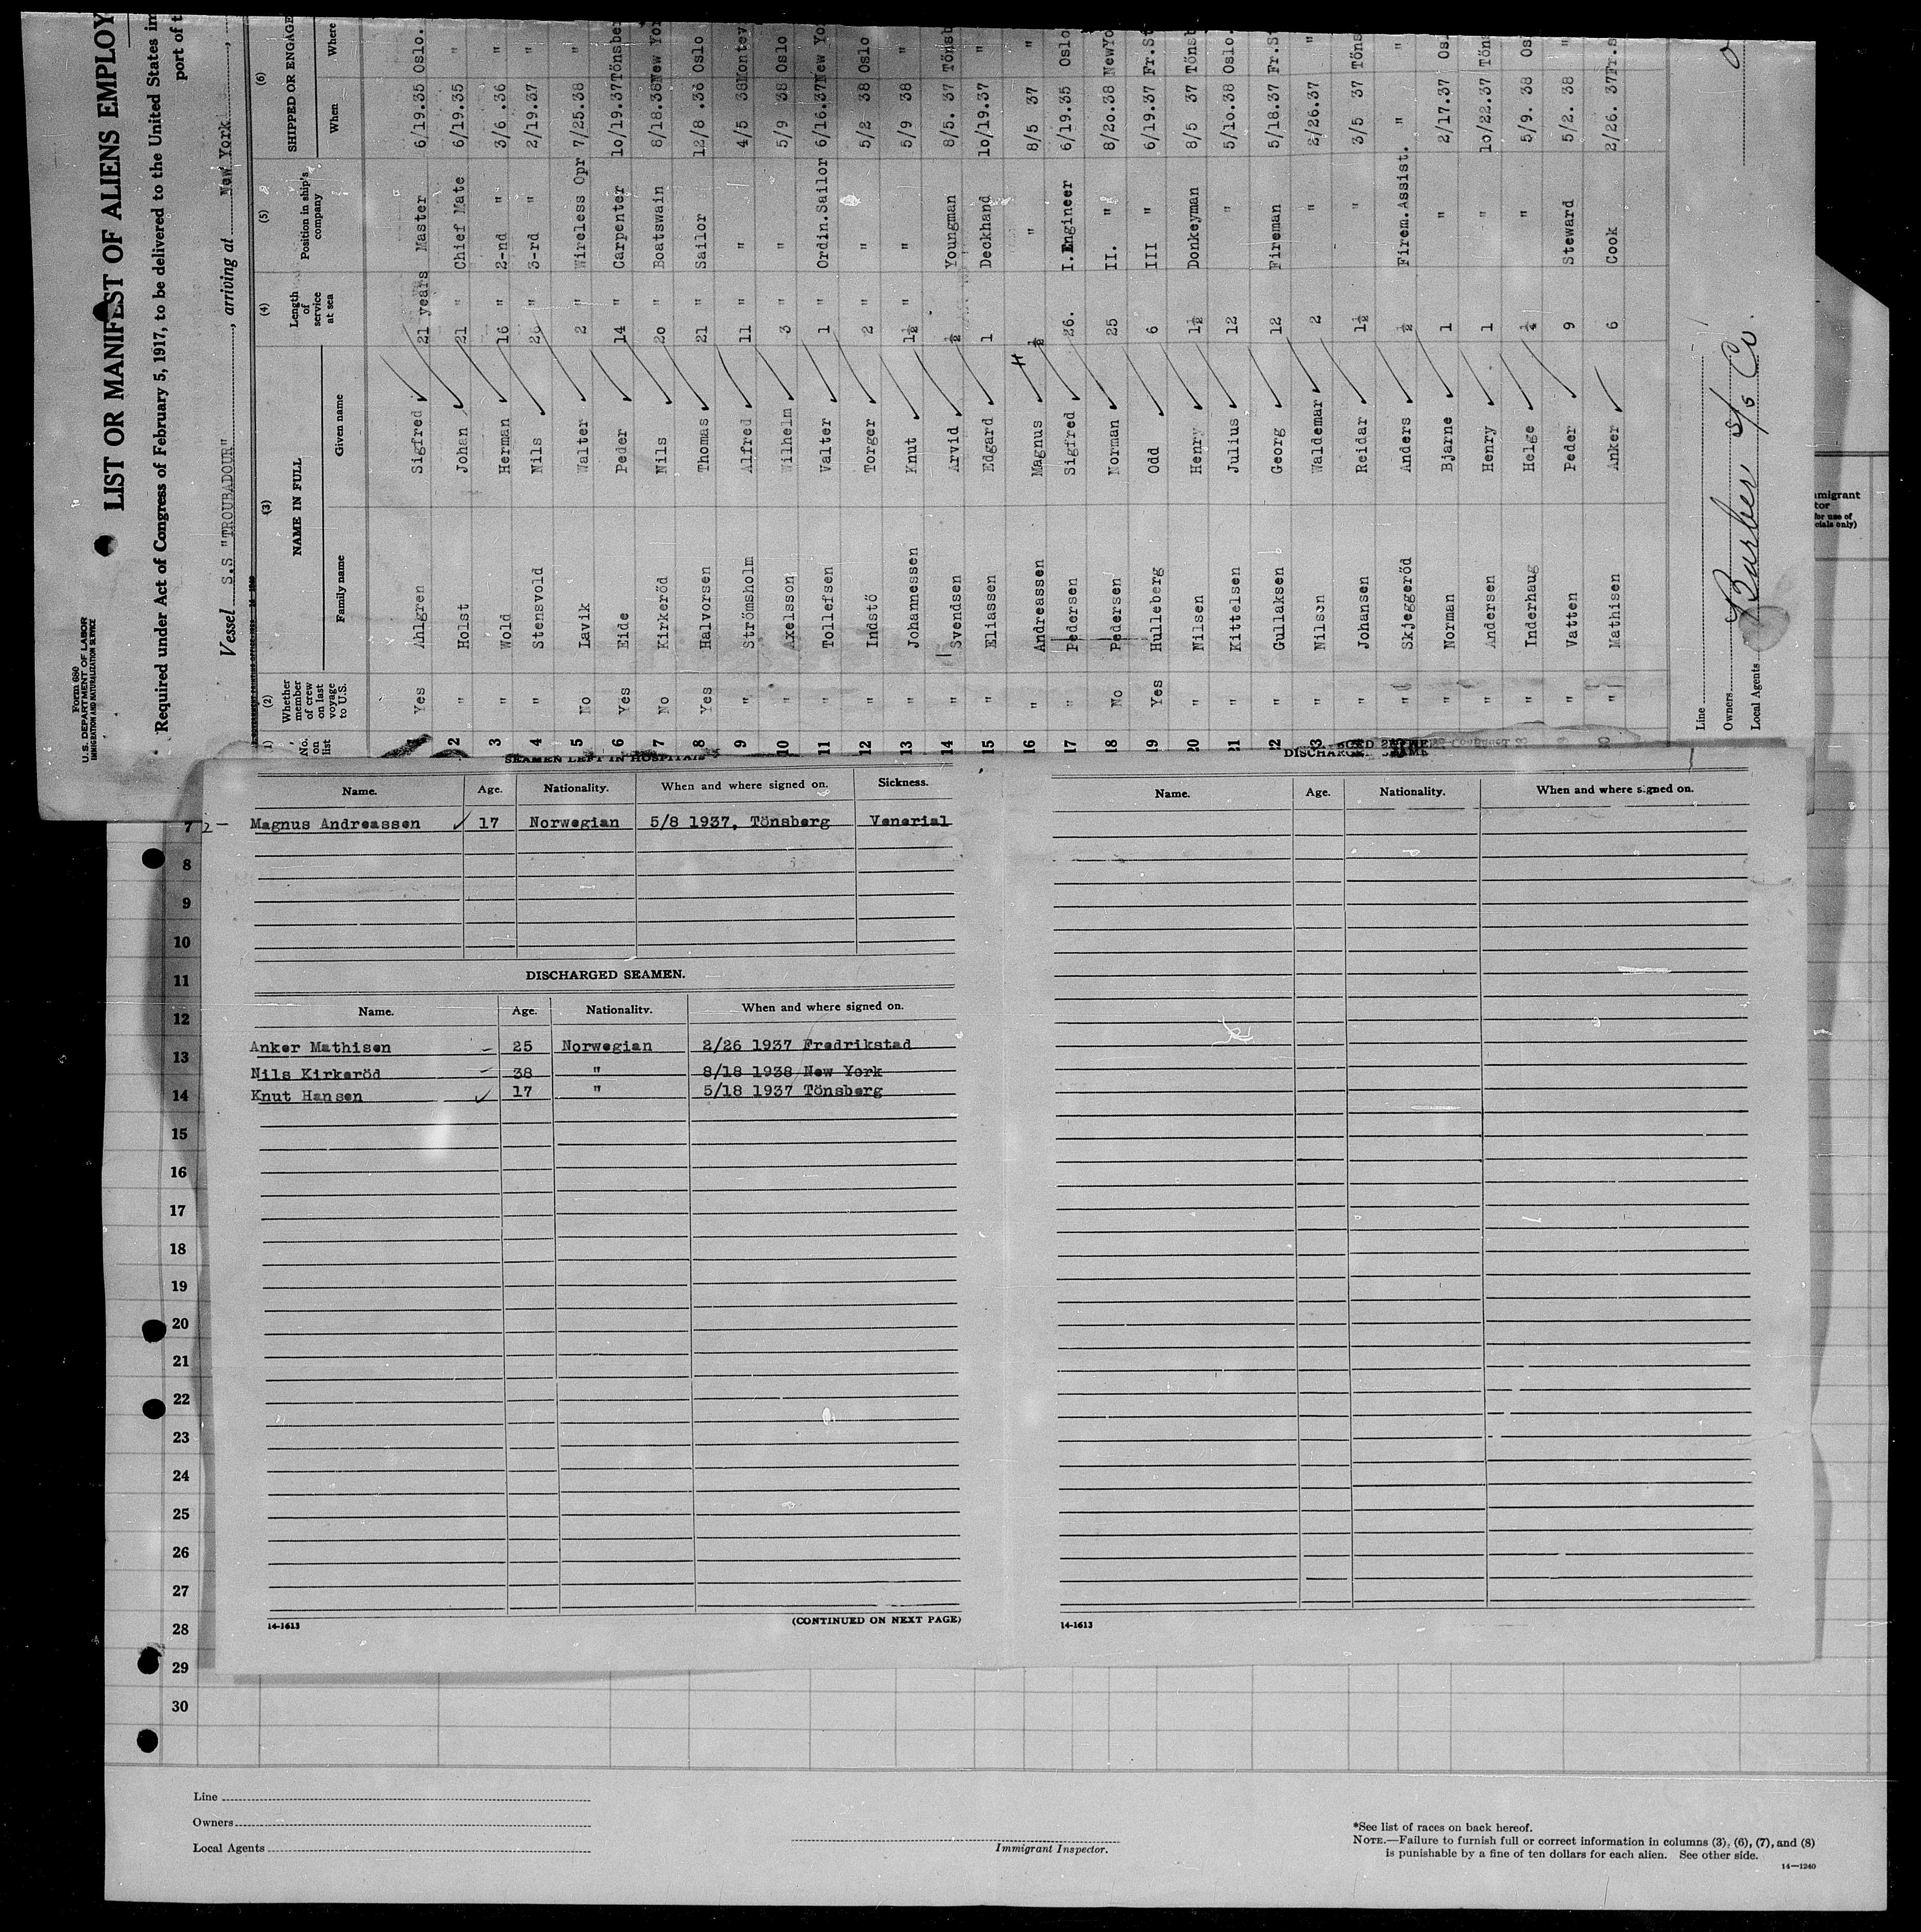 Form 680
U.S. DEPARTMENT OF LABOR
IMMIGRATION AND NATURALIZATION SERVICE
LIST OR MANIFEST OF ALIENS EMPLOY
Required under Act of Congress of February 5, 1917, to be delivered to the United States im
port of t
Vessel S.S "TROUBADOUR", arriving at New York,
(1) (2) (3) (4) (5) (6)
No. on list
Whether member of crew on last voyage to U.S.
NAME IN FULL
Family name Given name
Length of service at sea
Position in ship's company
SHIPPED OR ENGAGE
When Where
Yes Ahlgren Sigfred 21 years Master 6/19.35 Oslo.
2 " Holst Johan 21 " Chief Mate 6/19.35 "
3 " Wold Herman 16 " 2-nd " 3/6.36 "
4 " Stensvold Nils 26 " 3-rd " 2/19.37 "
5 No Lavik Walter 2 " Wireless Opr 7/25.38 "
6 Yes Eide Peder 14 " Carpenter 10/19.37 Tönsbe
7 No Kirkeröd Nils 20 " Boatswain 8/18.38 New Yo
8 Yes Halvorsen Thomas 21 " Sailor 12/8 .36 Oslo
9 " Strömsholm Alfred 11 " " 4/5 38 Montev
10 " Axelsson Wilhelm 3 " " 5/9 38 Oslo
11 " Tollefsen Valter 1 " Ordin.Sailor 6/16.37 New Yo
12 " Indstö Torger 2 " " 5/2 38 Oslo
13 " Johannessen Knut 1½ " " 5/9 38 "
14 " Svendsen Arvid ½ Youngman 8/5. 37 Tönsb
15 " Eliassen Edgard 1 Deckhand 10/19.37 "
16 " Andreassen Magnus ½ " 8/5 37 "
17 " Pedersen Sigfred 26. I.Engineer 6/19.35 Oslo
18 No Pedersen Norman 25 II. " 8/20.38 NewYo
19 Yes Hulleberg Odd 6 III " 6/19.37 Fr.St
20 " Nilsen Henry 1½ Donkeyman 8/5 37 Tönsb
21 " Kittelsen Julius 12 " 5/10.38 Oslo.
22 " Gullaksen Georg 12 Fireman 5/18.37 Fr.S
23 " Nilsen Waldemar 2 " 2/26.37 "
" Johansen Reidar 1½ " 3/5 37 Töns
" Skjeggeröd Anders ½ Firem.Assist. " "
" Norman Bjarne 1 " 2/17.37 Osl
" Andersen Henry 1 " 10/22.37 Töns
" Inderhaug Helge ¼ " 5/9. 38 Os
" Vatten Peder 9 Steward 5/2. 38 "
" Mathisen Anker 6 Cook 2/26. 37 Fr.s
Line
Owners
Local Agents
Barber S/S Co.
migrant
tor
for use of
cials only)
SEAMEN LEFT IN HOSPITALS
Name. Age. Nationality. When and where signed on. Sickness.
Magnus Andreassen 17 Norwegian 5/8 1937, Tönsberg Venerial
DISCHARGED SEAMEN.
Name. Age. Nationality. When and where signed on.
Anker Mathisen 25 Norwegian 2/26 1937 Fredrikstad
Nils Kirkeröd 38 " 8/18 1938 New York
Knut Hansen 17 " 5/18 1937 Tönsberg
14-1613 (CONTINUED ON NEXT PAGE)
Name. Age. Nationality. When and where signed on.
14-1613
7
8
9
10
11
12
13
14
15
16
17
18
19
20
21
22
23
24
25
26
27
28
29
30
Line
Owners
Local Agents
Immigrant Inspector.
*See list of races on back hereof.
NOTE.—Failure to furnish full or correct information in columns (3), (6), (7), and (8)
is punishable by a fine of ten dollars for each alien. See other side.
14—1240